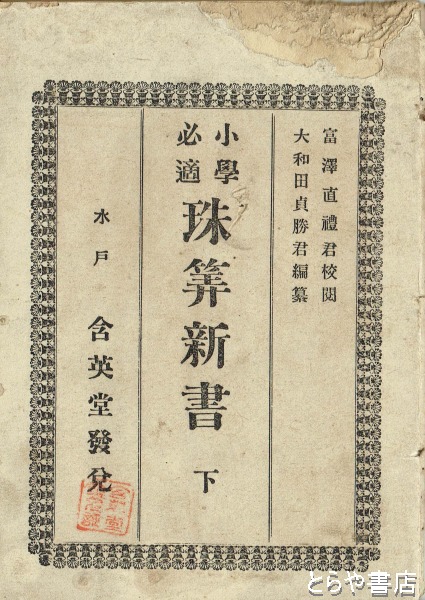 富澤直禮君校閲
大和田貞勝君編纂
小學
必適
珠筭新書 下
水戸 含英堂發兌
とらや書店